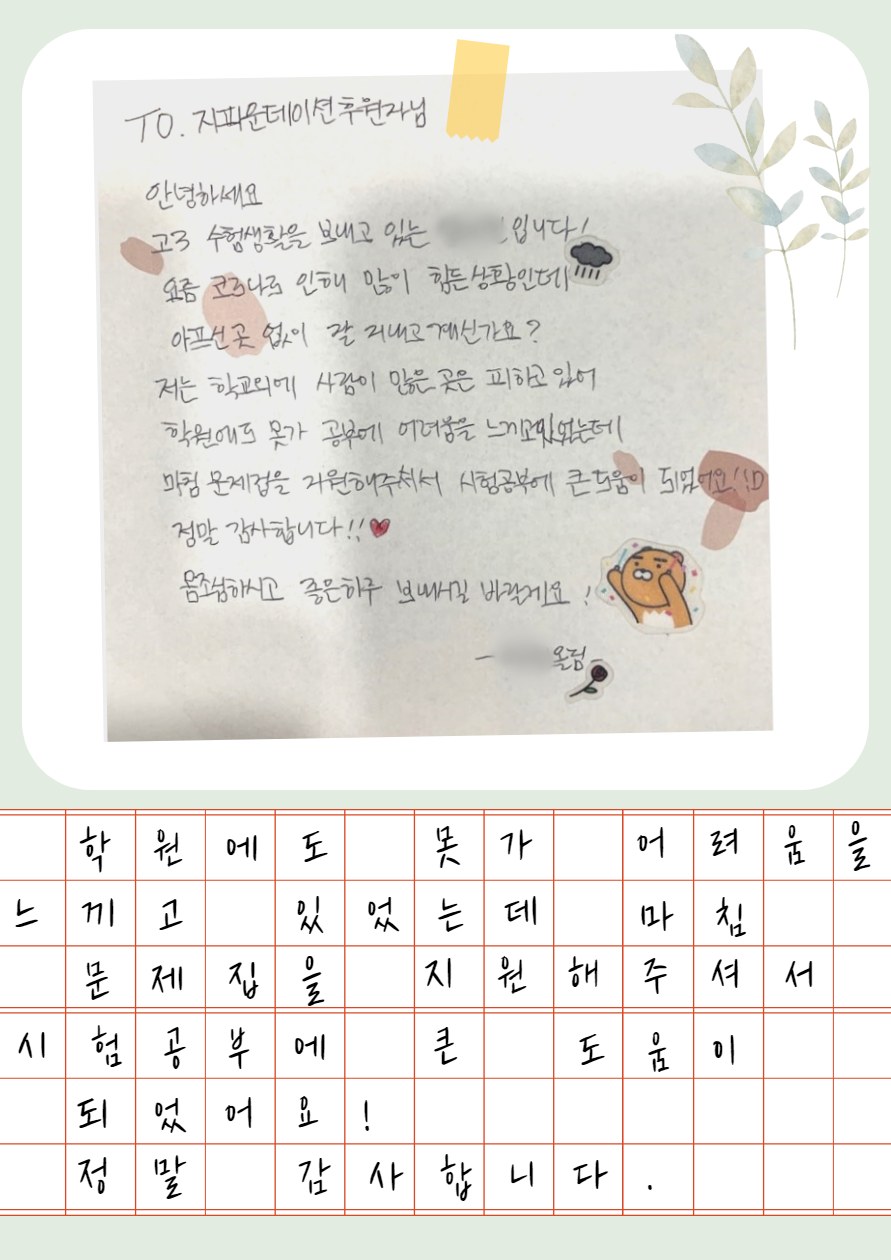 TO. 지파운데이션후원자님
안녕하세요
고3 수험생활을 보내고 있는 입니다!
요즘 코로나로 인해 많이 힘든상황인데
아프신곳 없이 잘 지내고계신가요?
저는 학교외에 사람이 많은곳은 피하고있어
학원에도 못가 공부에 어려움을 느끼고있었는데
마침 문제집을 지원해주셔서 시험공부에 큰도움이 되었어요!:D
정말 감사합니다!!
몸조심하시고 좋은하루 보내시길 바랄게요!
- 올림-
학원에도 못가 어려움을
느끼고 있었는데 마침
문제집을 지원해주셔서
시험공부에 큰 도움이
되었어요!
정말 감사합니다.